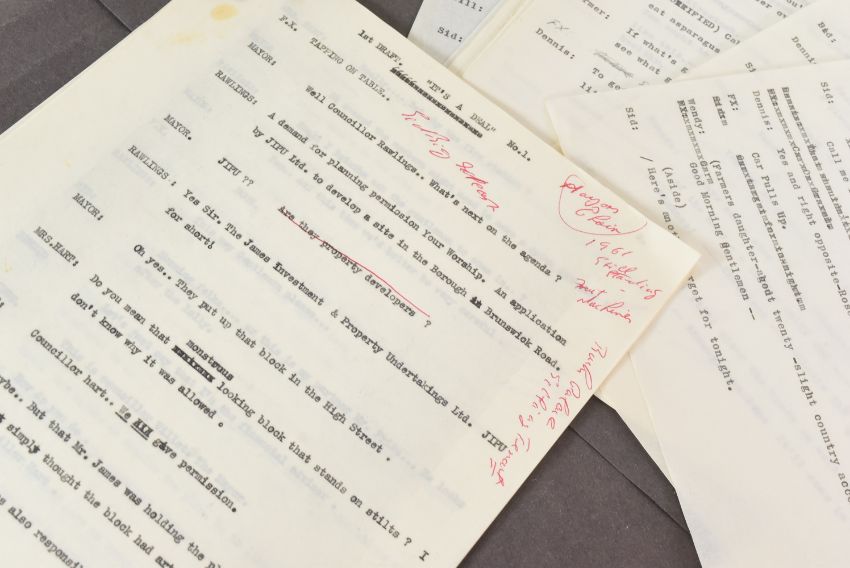 1st DRAFT. "IT'S A DEAL" No.1.
F.X. TAPPING ON TABLE..
MAYOR: Well Councillor Rawlings.. What's next on the agenda ?
RAWLINGS: A demand for planning permission Your Worship. An application
by JIPU Ltd. to develop a site in the Borough in Brunswick Road.
MAYOR. JIPU ?? Are they property developers ?
RAWLINGS: Yes Sir. The James Investment & Property Undertakings Ltd. JIPU
for short!
MAYOR: Oh yes.. They put up that block in the High Street .
MRS.HART: Do you mean that monstruus looking block that stands on stilts ? I
don't know why it was allowed .
Councillor hart... We All gave permission.
ybe.. But that Mr. James was holding the pl
t simply thought the block had art
s also responsi
1961
still
standing
Sid:
Dennis:
FX
rmer:
(HORRIFIED) Ca
eat asparagus
If what's g
see what
To ge
li
Sid:
Dennis:
Sid:
Call me
Dennis: Yes and right opposite-Rose
FX: Car Pulls Up.
Wendy: (Farmers daughter-about twenty -slight country acc
Good Morning Gentlemen --
Sid: (Aside)
/ Here's on
rget for tonight.